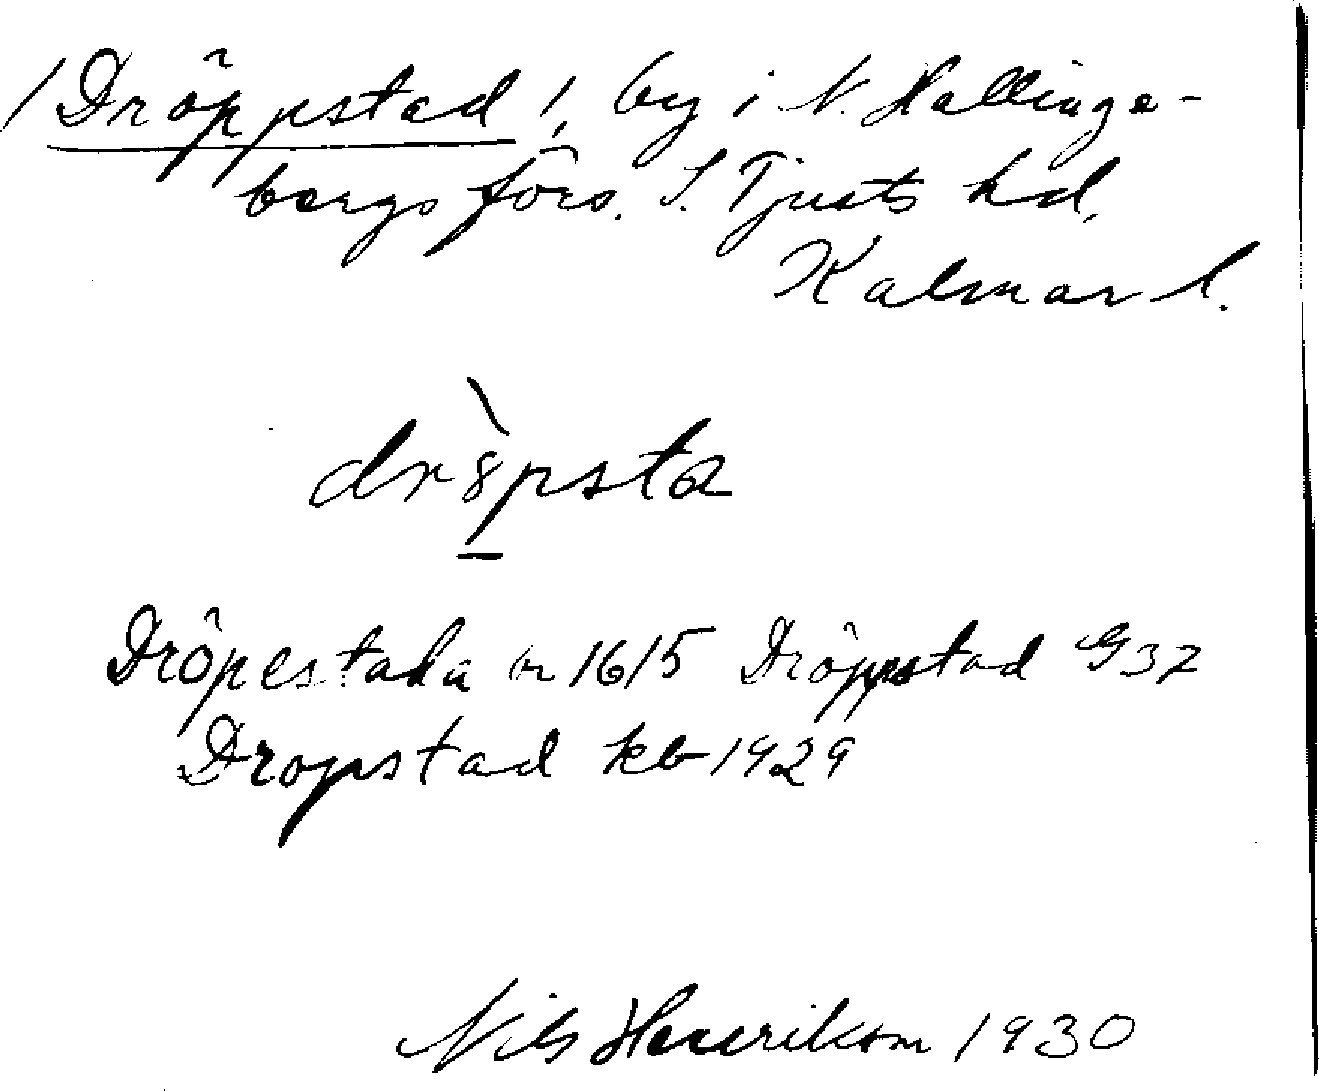 /Dröppstad/, by i N. Hallinge-
bergs förs. S. Tjusts hd,
Kalmar l.
dr8̀psta
Dröpestada 1615 Dröppstad G32
Dropstad kb 1929
Nils Henrikson 1930